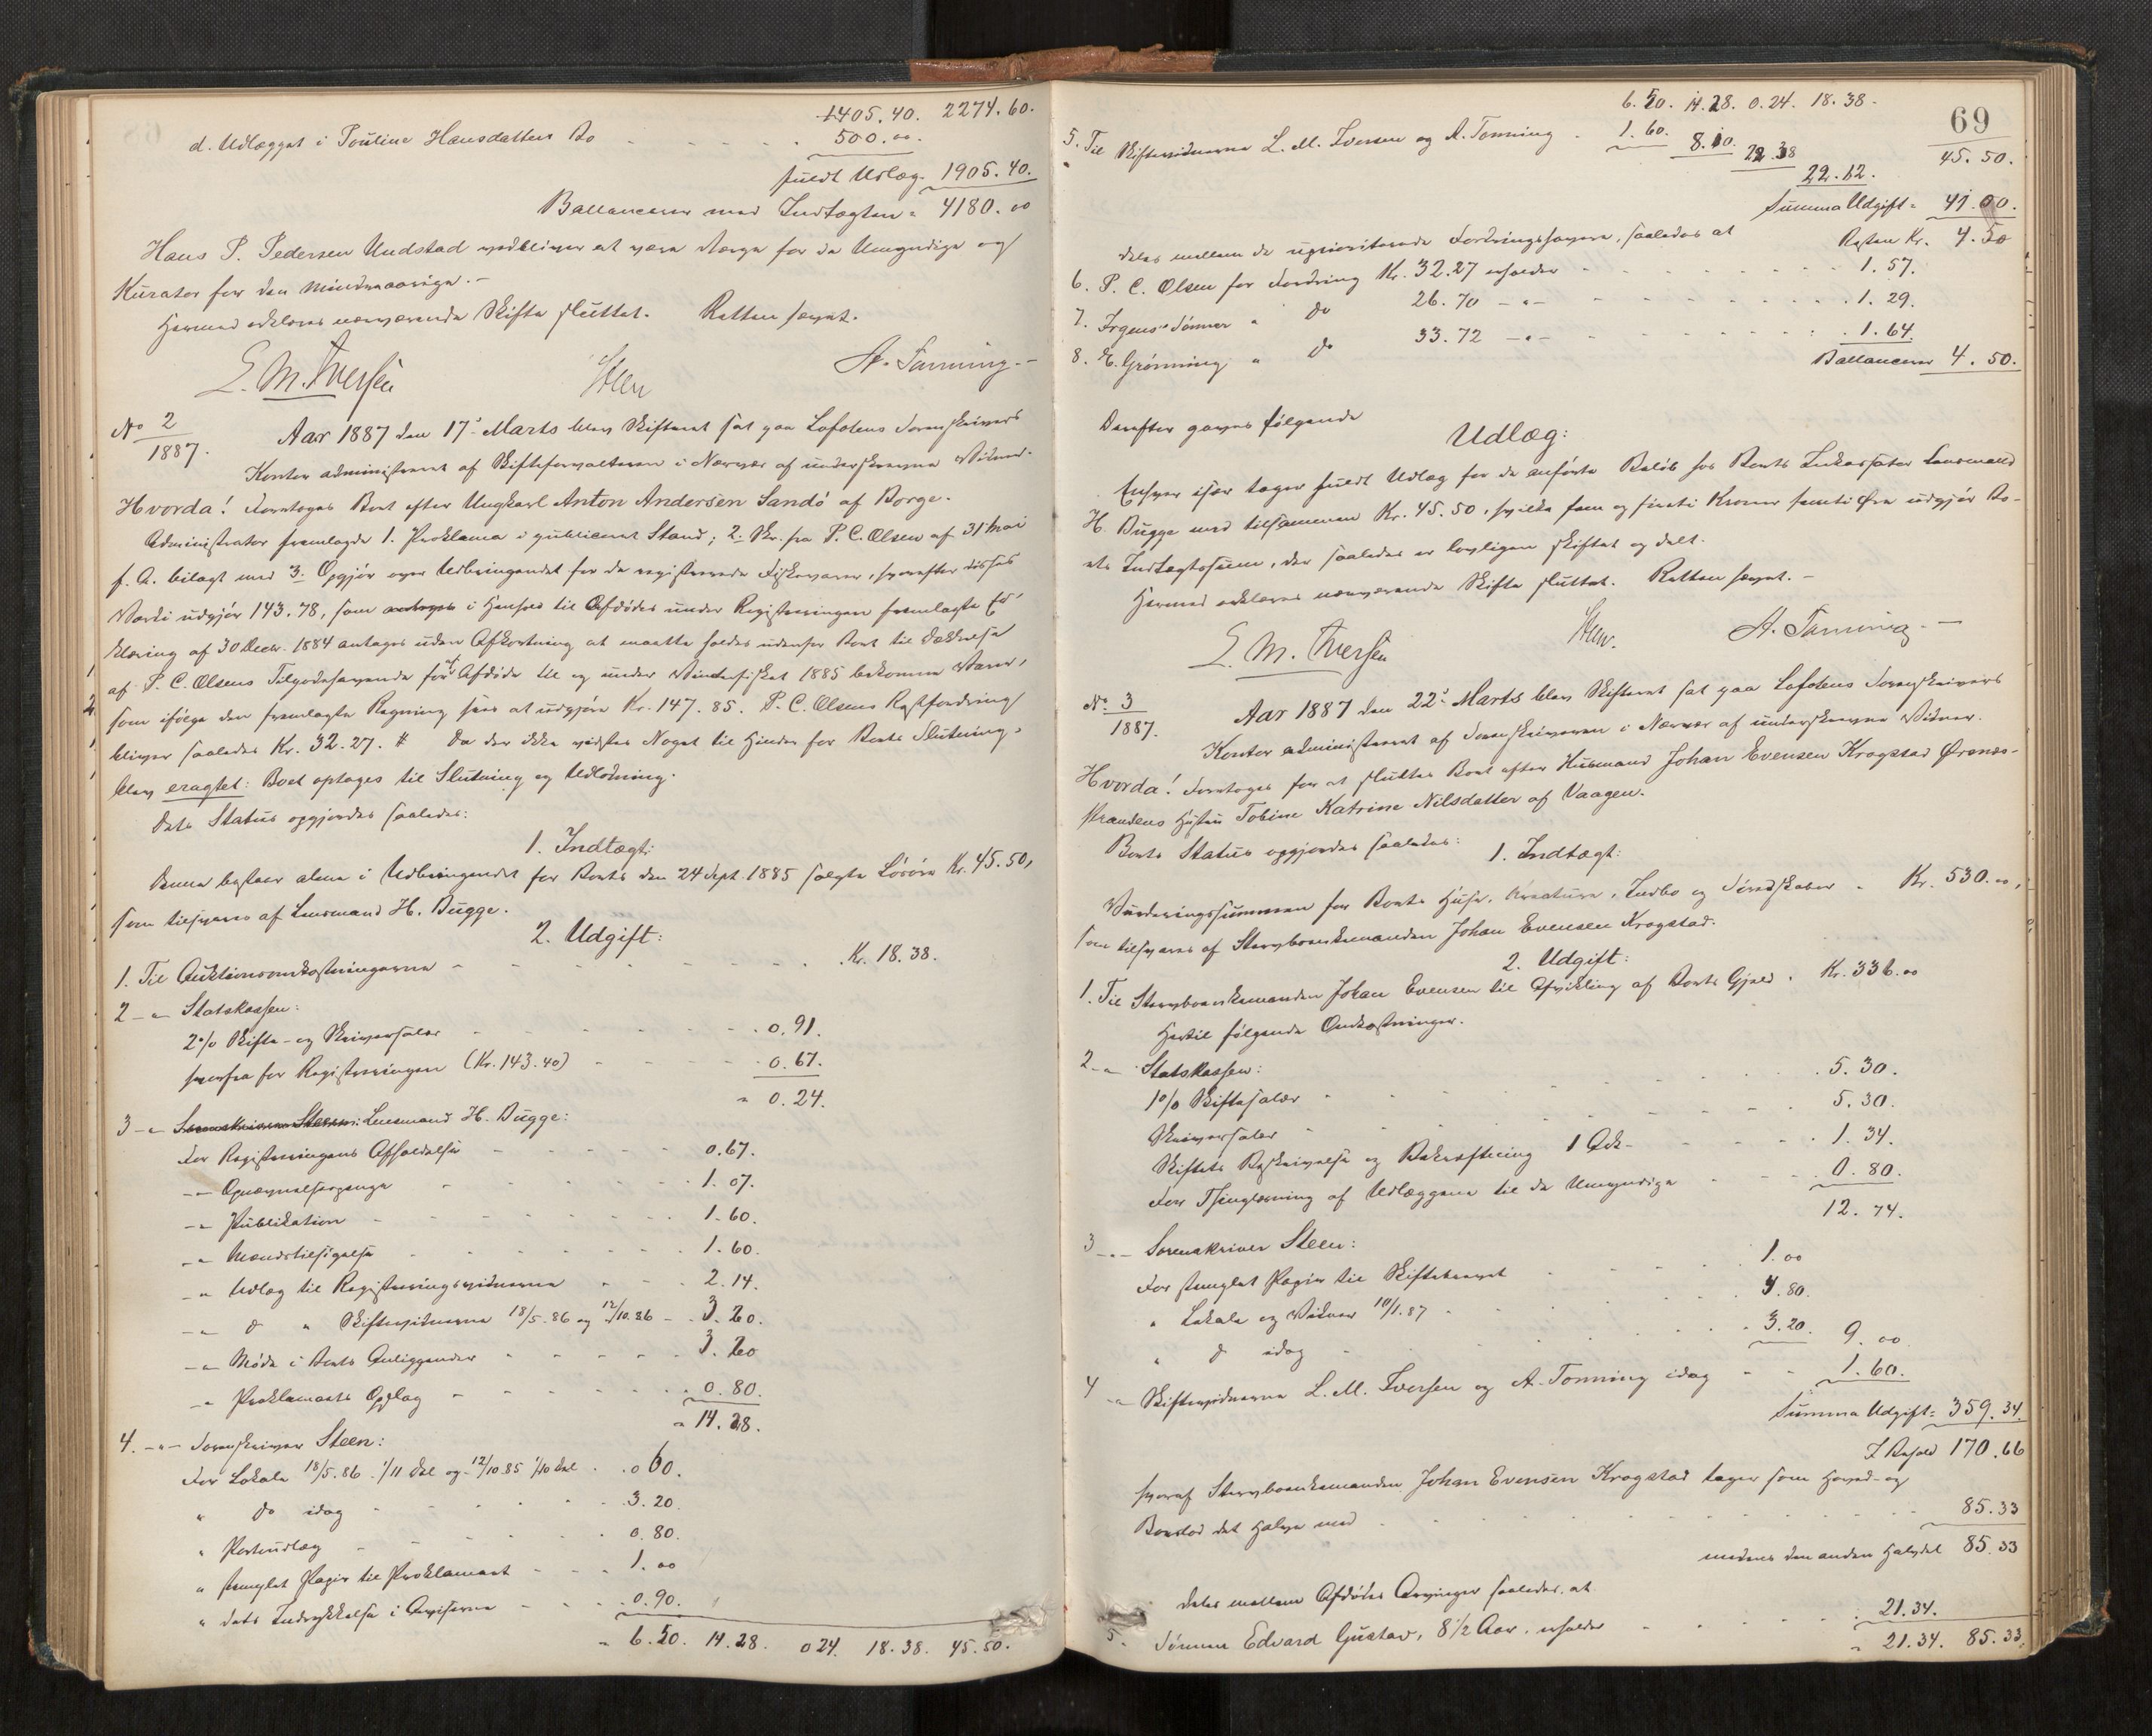 1405.40. 2274.60.
d. Udlægget i Pouline Hansdatters Bo 500.00.
fuldt Udlæg. 1905.40.
Ballancerer med Indtægten = 4180.00
Hans P. Pedersen Undstad vedbliver at være Værge for de Umyndige og
Kurator for den Mindreaarige.-
Hermed erklæres nærværende Skifte sluttet. Retten hævet.
L. M. Iversen Steen A. Tønning.-
No 2/1887. Aar 1887 den 17de Marts blev Skifteret sat paa Lofotens Sorenskrivers
Kontor administreret af Skifteforvalteren i Nærvær af underskrevne Vidner.
Hvorda! Foretoges Boet efter Ungkarl Anton Andersen Sandö af Borge.
Administrator fremlagde 1. Proklama i publiceret Stand; 2. Skr. fra P. C. Olsen af 31 Mai
f. A. bilagt med 3. Opgjör over Udbringendet for de registrerede Fiskevarer, hvorefter disses
Værdi udgjör 143.78, som antoges i Henhold til Afdödes under Registreringen fremlagte Er-
klæring af 30 Decbr. 1884 antages uden Afkortning at maatte holdes udenfor Boet til Dækkelse
af P. C. Olsens Tilgodehavende for af Afdöde til og under Vinterfisket 1885 bekomne Varer,
som ifölge den fremlagte Regning sees at udgjöre Kr. 147.85. P. C. Olsens Restfordring
bliver saaledes Kr. 32.27. # Da der ikke vidstes Noget til Hinder for Boets Slutning,
blev eragtet: Boet optages til Slutning og Udlodning.
Dets Status opgjordes saaledes:
1. Indtægt:
Denne bestaar alene i Udbringendet for Boets den 24 Sept. 1885 solgte Lösöre Kr. 45.50,
som tilsvares af Lensmand H. Bugge.
2. Udgift:
1. Til Auktionsomkostningerne Kr. 18.38.
2 -"- Statskassen:
2% Skifte- og Skriversalær 0.91.
herfra for Registreringen (Kr. 143.40) 0.67.
" 0.24.
3 -"- Sorenskriver Steen: Lensmand H. Bugge:
For Registreringens Afholdelse 0.67.
-"- Opnævnelsespenge 1.07.
-"- Publikation 1.60.
-"- Mændstilsigelse 1.60.
-"- Udlæg til Registreringsvidnerne 2.14.
-"- do " Skiftevidnerne 18/5.86 og 12/10.86 3.20.
-"- Möde i Boets Anliggender 3.20
-"- Proklamaets Opslag 0.80.
" 14.28.
4. -"- Sorenskriver Steen:
For Lokale 18/5.86. 1/11 Del og 12/10.85 1/10 Del 0 60.
" do idag 3.20.
" Portoudlæg 0.80.
" stemplet Papir til Proklamaet 1.00
" dets Indrykkelse i Aviserne 0.90.
" 6.50. 14.28. 0 24. 18.38. 45.50.
69
6.50. 14.28. 0.24. 18.38.
5. Til Skiftevidnerne L. M. Iversen og A. Tønning 1.60. 8.10. 22.38 45.50.
22.62.
Summa Udgift = 41.00.
Resten Kr. 4.50
deles mellem de uprioriterede Fordringshavere, saaledes at
6. P. C. Olsen for Fordring Kr. 32.27 erholder 1.57.
7. Irgens' Sönner " do 26.70 -"- 1.29.
8. E. Grönning " do 33.72 -"- 1.64.
Ballancerer 4.50.
Derefter gaves fölgende
Udlæg:
Enhver især tager fuldt Udlæg for de anförte Belöb hos Boets Inkassator Lensmand
H. Bugge med tilsammen Kr. 45.50, hvilke fem og firti Kroner femti Öre udgjör Bo-
ets Indtægtssum, der saaledes er lovligen skiftet og delt.
Hermed erklæres nærværende Skifte sluttet. Retten hævet.-
L. M. Iversen Steen. A. Tønning.-
No 3/1887. Aar 1887 den 22de Marts blev Skifteret sat paa Lofotens Sorenskrivers
Kontor administreret af Sorenskriveren i Nærvær af underskrevne Vidner.
Hvorda! Foretoges for at sluttes Boet efter Husmand Johan Evensen Krogstad Örsnæs-
strandens Hustru Tobine Katrine Nilsdatter af Vaagen.
Boets Status opgjordes saaledes:
1. Indtægt:
Vurderingssummen for Boets Huse, Kreature, Indbo og Söredskaber Kr. 530.00,
som tilsvares af Stervboenkemanden Johan Evensen Krogstad.
2. Udgift:
1. Til Stervboenkemanden Johan Evensen til Afvikling af Boets Gjæld Kr. 336.00
Hertil fölgende Omkostninger.
2 -"- Statskassen:
1% Skiftesalær 5.30.
Skriversalær 5.30.
Skiftets Beskrivelse og Bekræftning 1 Ark 1.34.
For Thinglæsning af Udlæggene til de Umyndige 0.80.
12.74.
3 -"- Sorenskriver Steen:
For stemplet Papir til Skiftebrevet 1.00
" Lokale og Vidner 10/1.87 4.80.
" do idag 3.20. 9.00
4 -"- Skiftevidnerne L. M. Iversen og A. Tønning idag 1.60.
Summa Udgift = 359.34.
I Behold 170.66
hvoraf Stervboenkemanden Johan Evensen Krogstad tager som Hoved- og
Boeslod det Halve med 85.33
medens den anden Halvdel 85.33
deles mellem Afdödes Arvinger saaledes, at
5. Sönnen Edvard Gustav, 8 1/2 Aar, erholder 21.34.
" 21.34. 85.33.